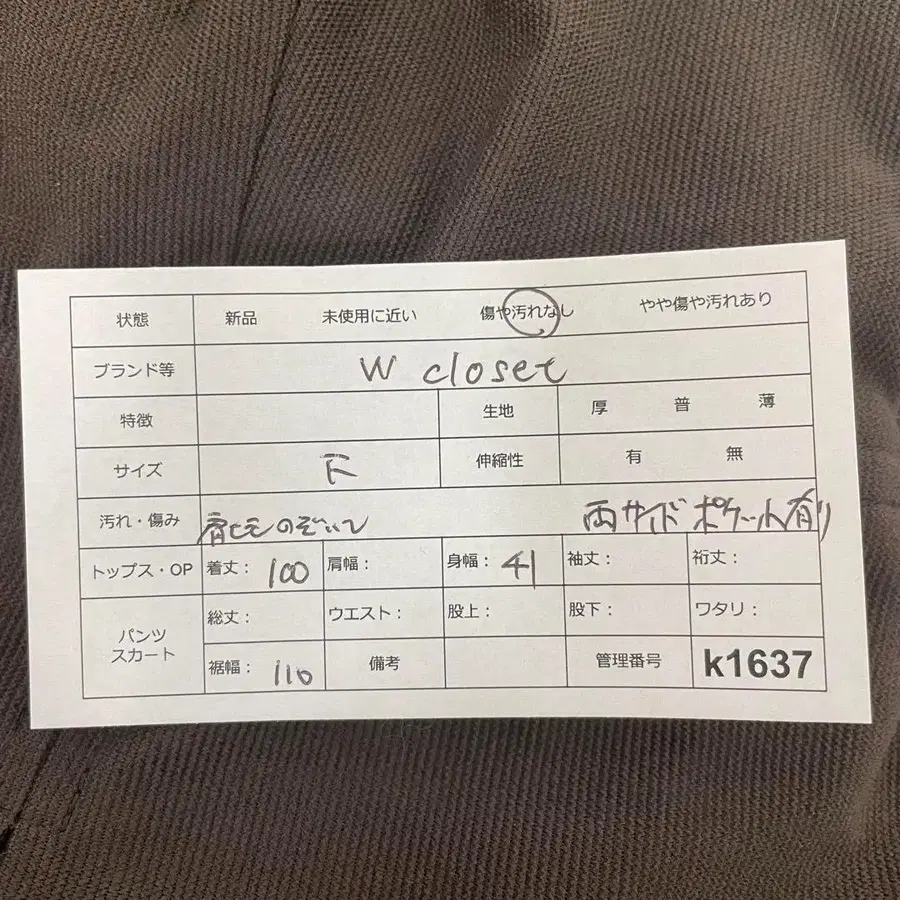 状態 新品 未使用に近い 傷や汚れなし やや傷や汚れあり
ブランド等 W closet
特徴 生地 厚 普 薄
サイズ F 伸縮性 有 無
汚れ・傷み 肩ヒモのぞいて 両サイドポケット有り
トップス・OP 着丈： 100 肩幅： 身幅： 41 袖丈： 裄丈：
パンツ スカート 総丈： ウエスト： 股上： 股下： ワタリ：
裾幅： 110 備考 管理番号 k1637